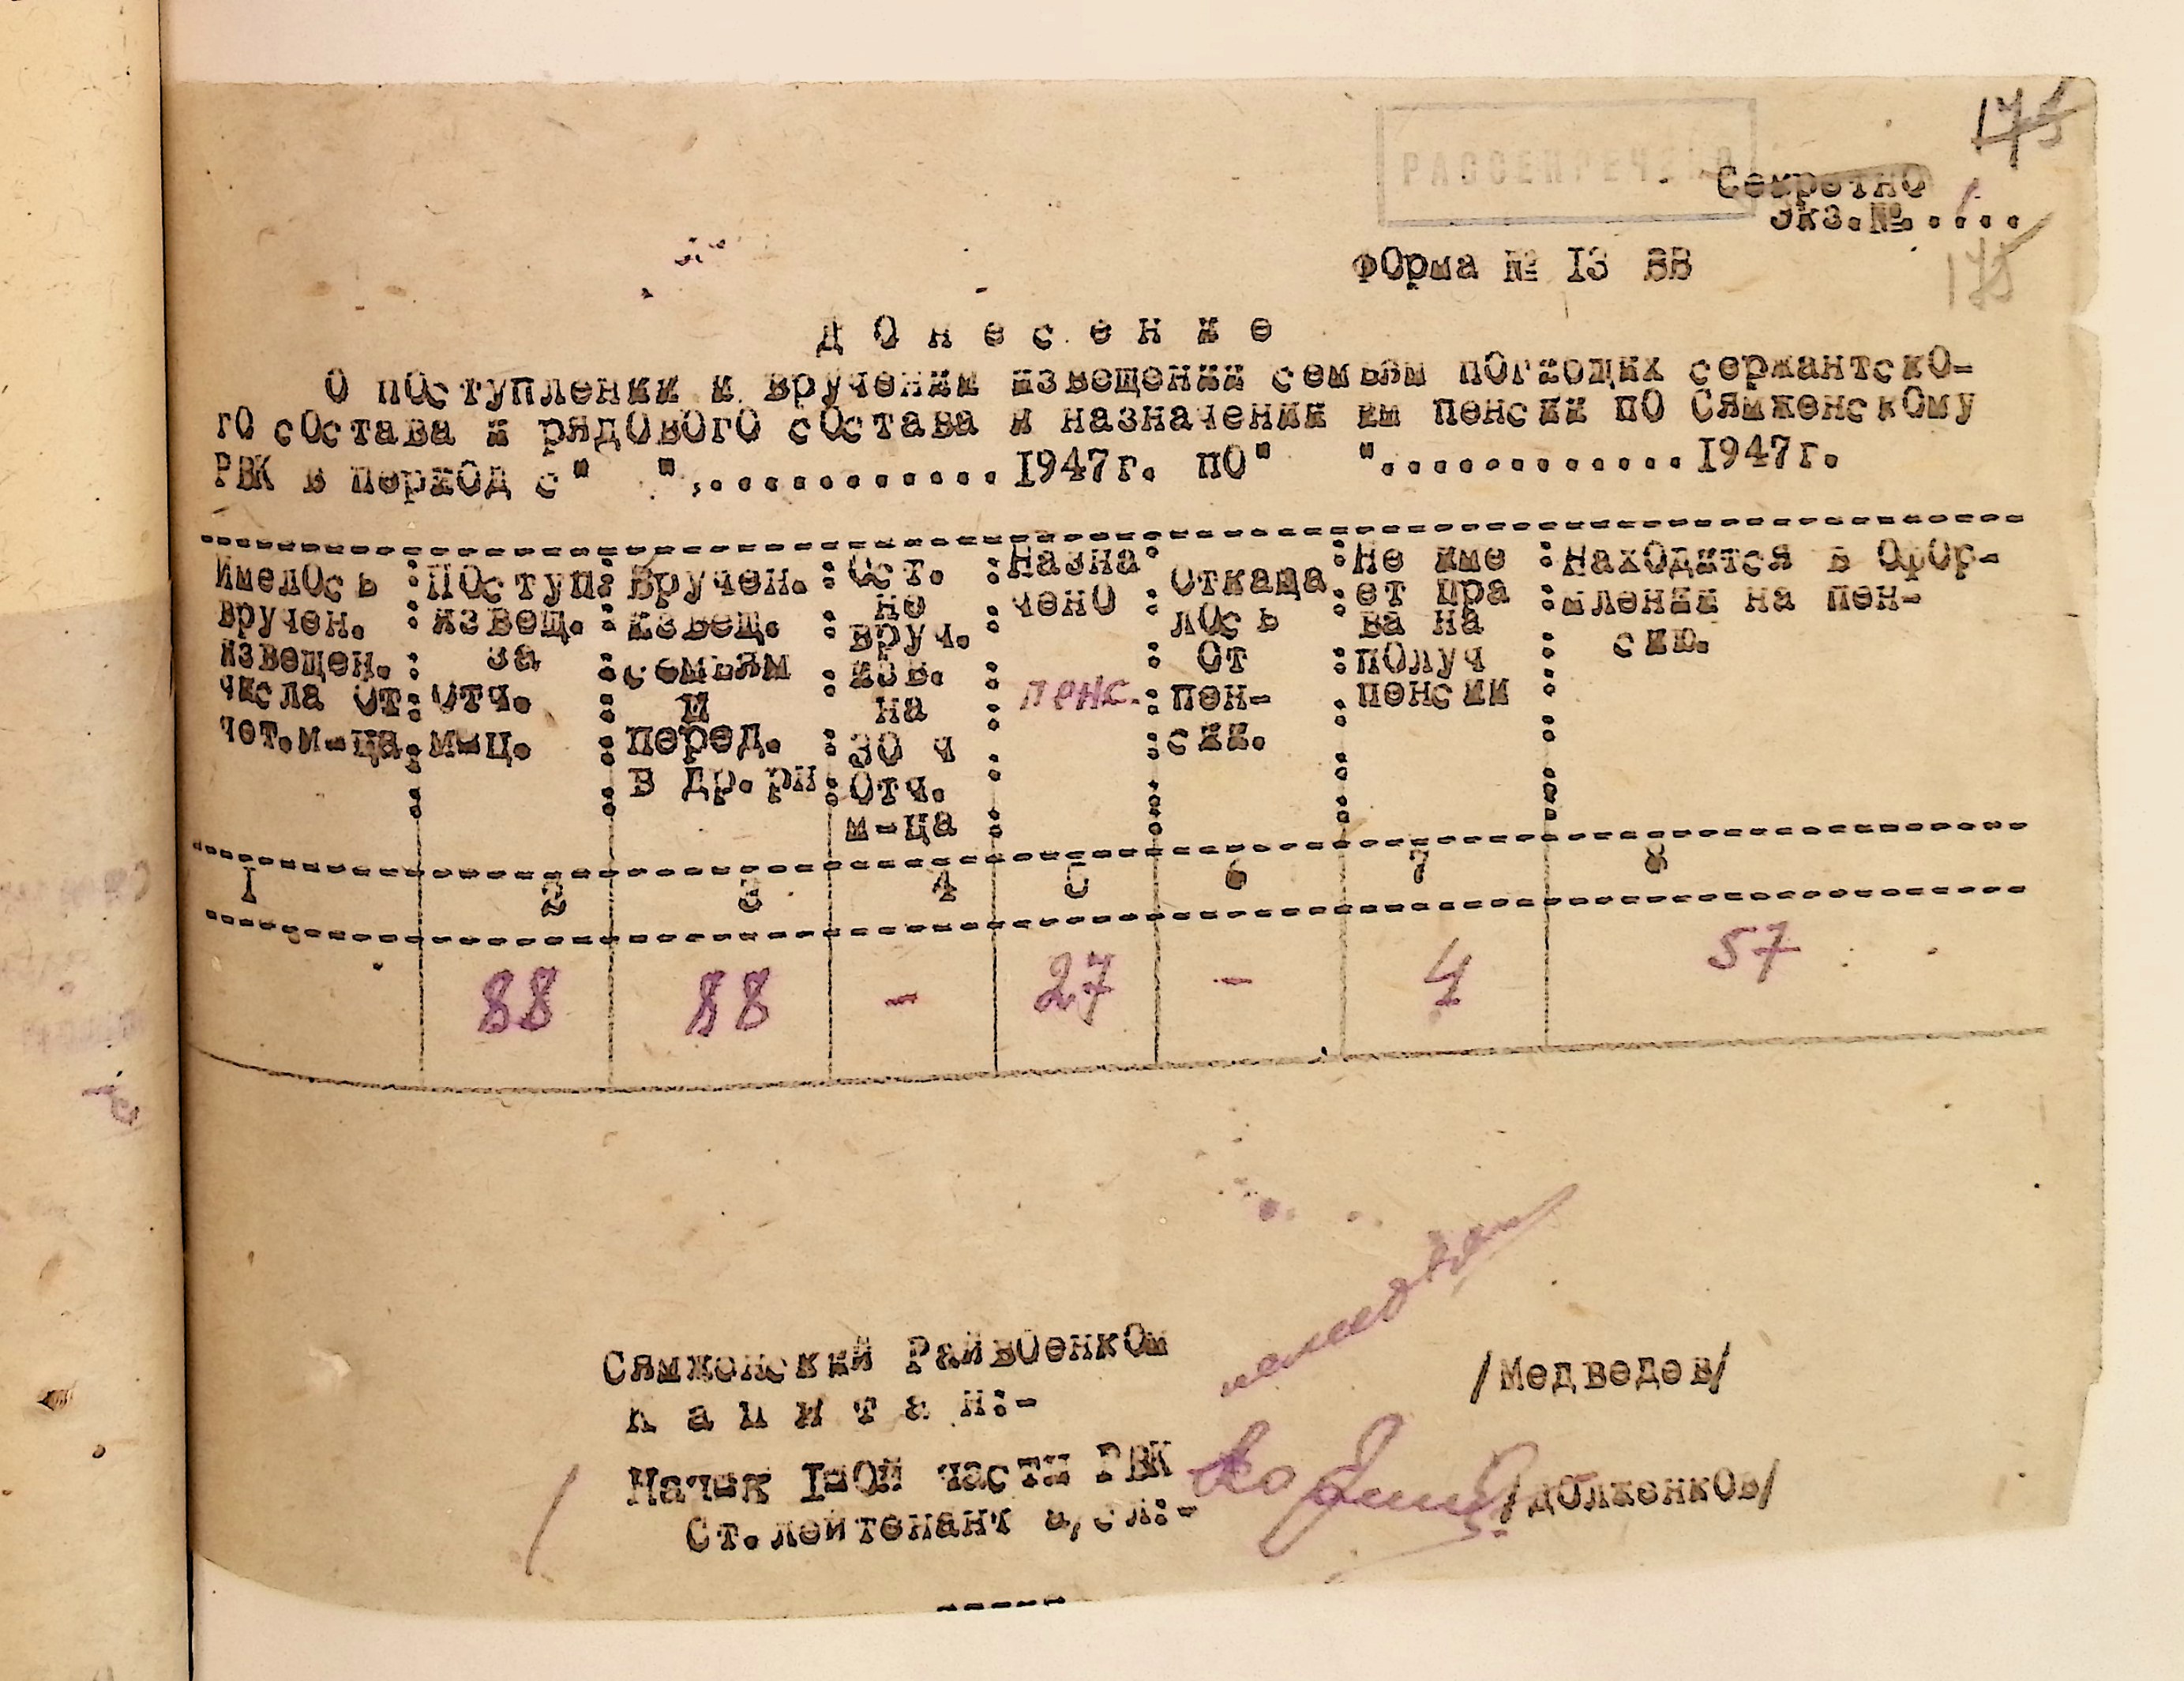 175
РАССЕКРЕЧЕНО
Секретно
Экз.№.....
175
Форма № I3 ВВ
Донесение
О поступлении и вручении извещений семьям погибших сержантско-
го состава и рядового состава и назначении им пенсии по Сямженскому
РВК в период с" ".............1947г. по" ".............1947г.
Имелось вручен. извещен. числа от чет.м-ца.
Поступ. извещ. за отч. м-ц.
Вручен. извещ. семьям и перед. в др.рн
Ост. не вруч. изв. на 30 ч отч. м-ца
Назна чено пенс.
Отказа лось от пен- сии.
Не име ет пра ва на получ пенсии
Находится в офор- млении на пен- сию.
I 2 3 4 5 6 7 8
88 88 - 27 - 4 57
Сямженский Райвоенком
Капитан:- /Медведев/
Нач-к I-ой части РВК
Ст.лейтенант а/сл:- /Долженков/